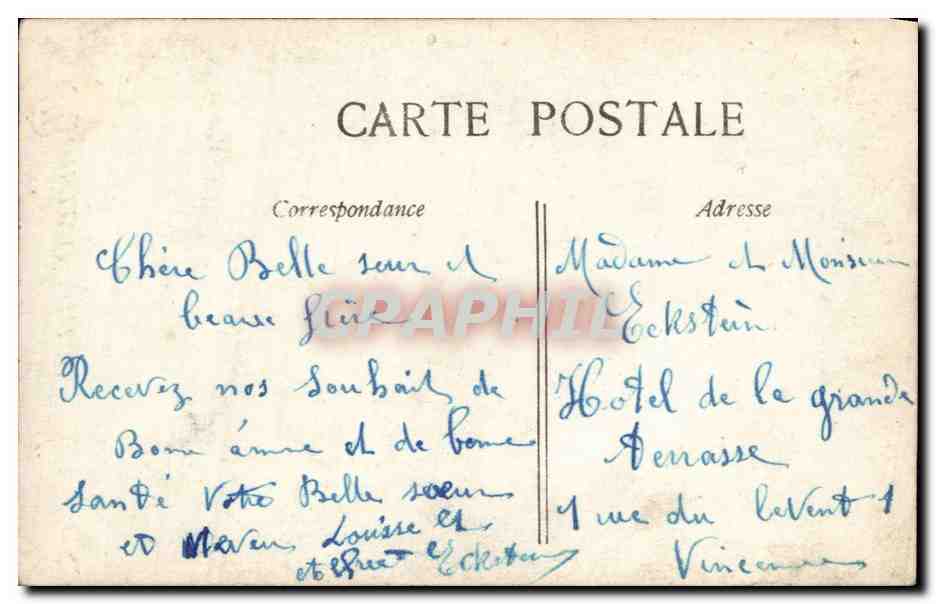 CARTE POSTALE
Correspondance
Chère Belle seur et
beause frère
Recevez nos Souhait de
Bonne année et de bonne
santé Votre Belle soeur
et neveu Louisse et
et Eckstein
Adresse
Madame et Monsieur
Eckstein
Hotel de la grande
Terrasse
1 rue du levent 1
Vincennes
GRAPHIL